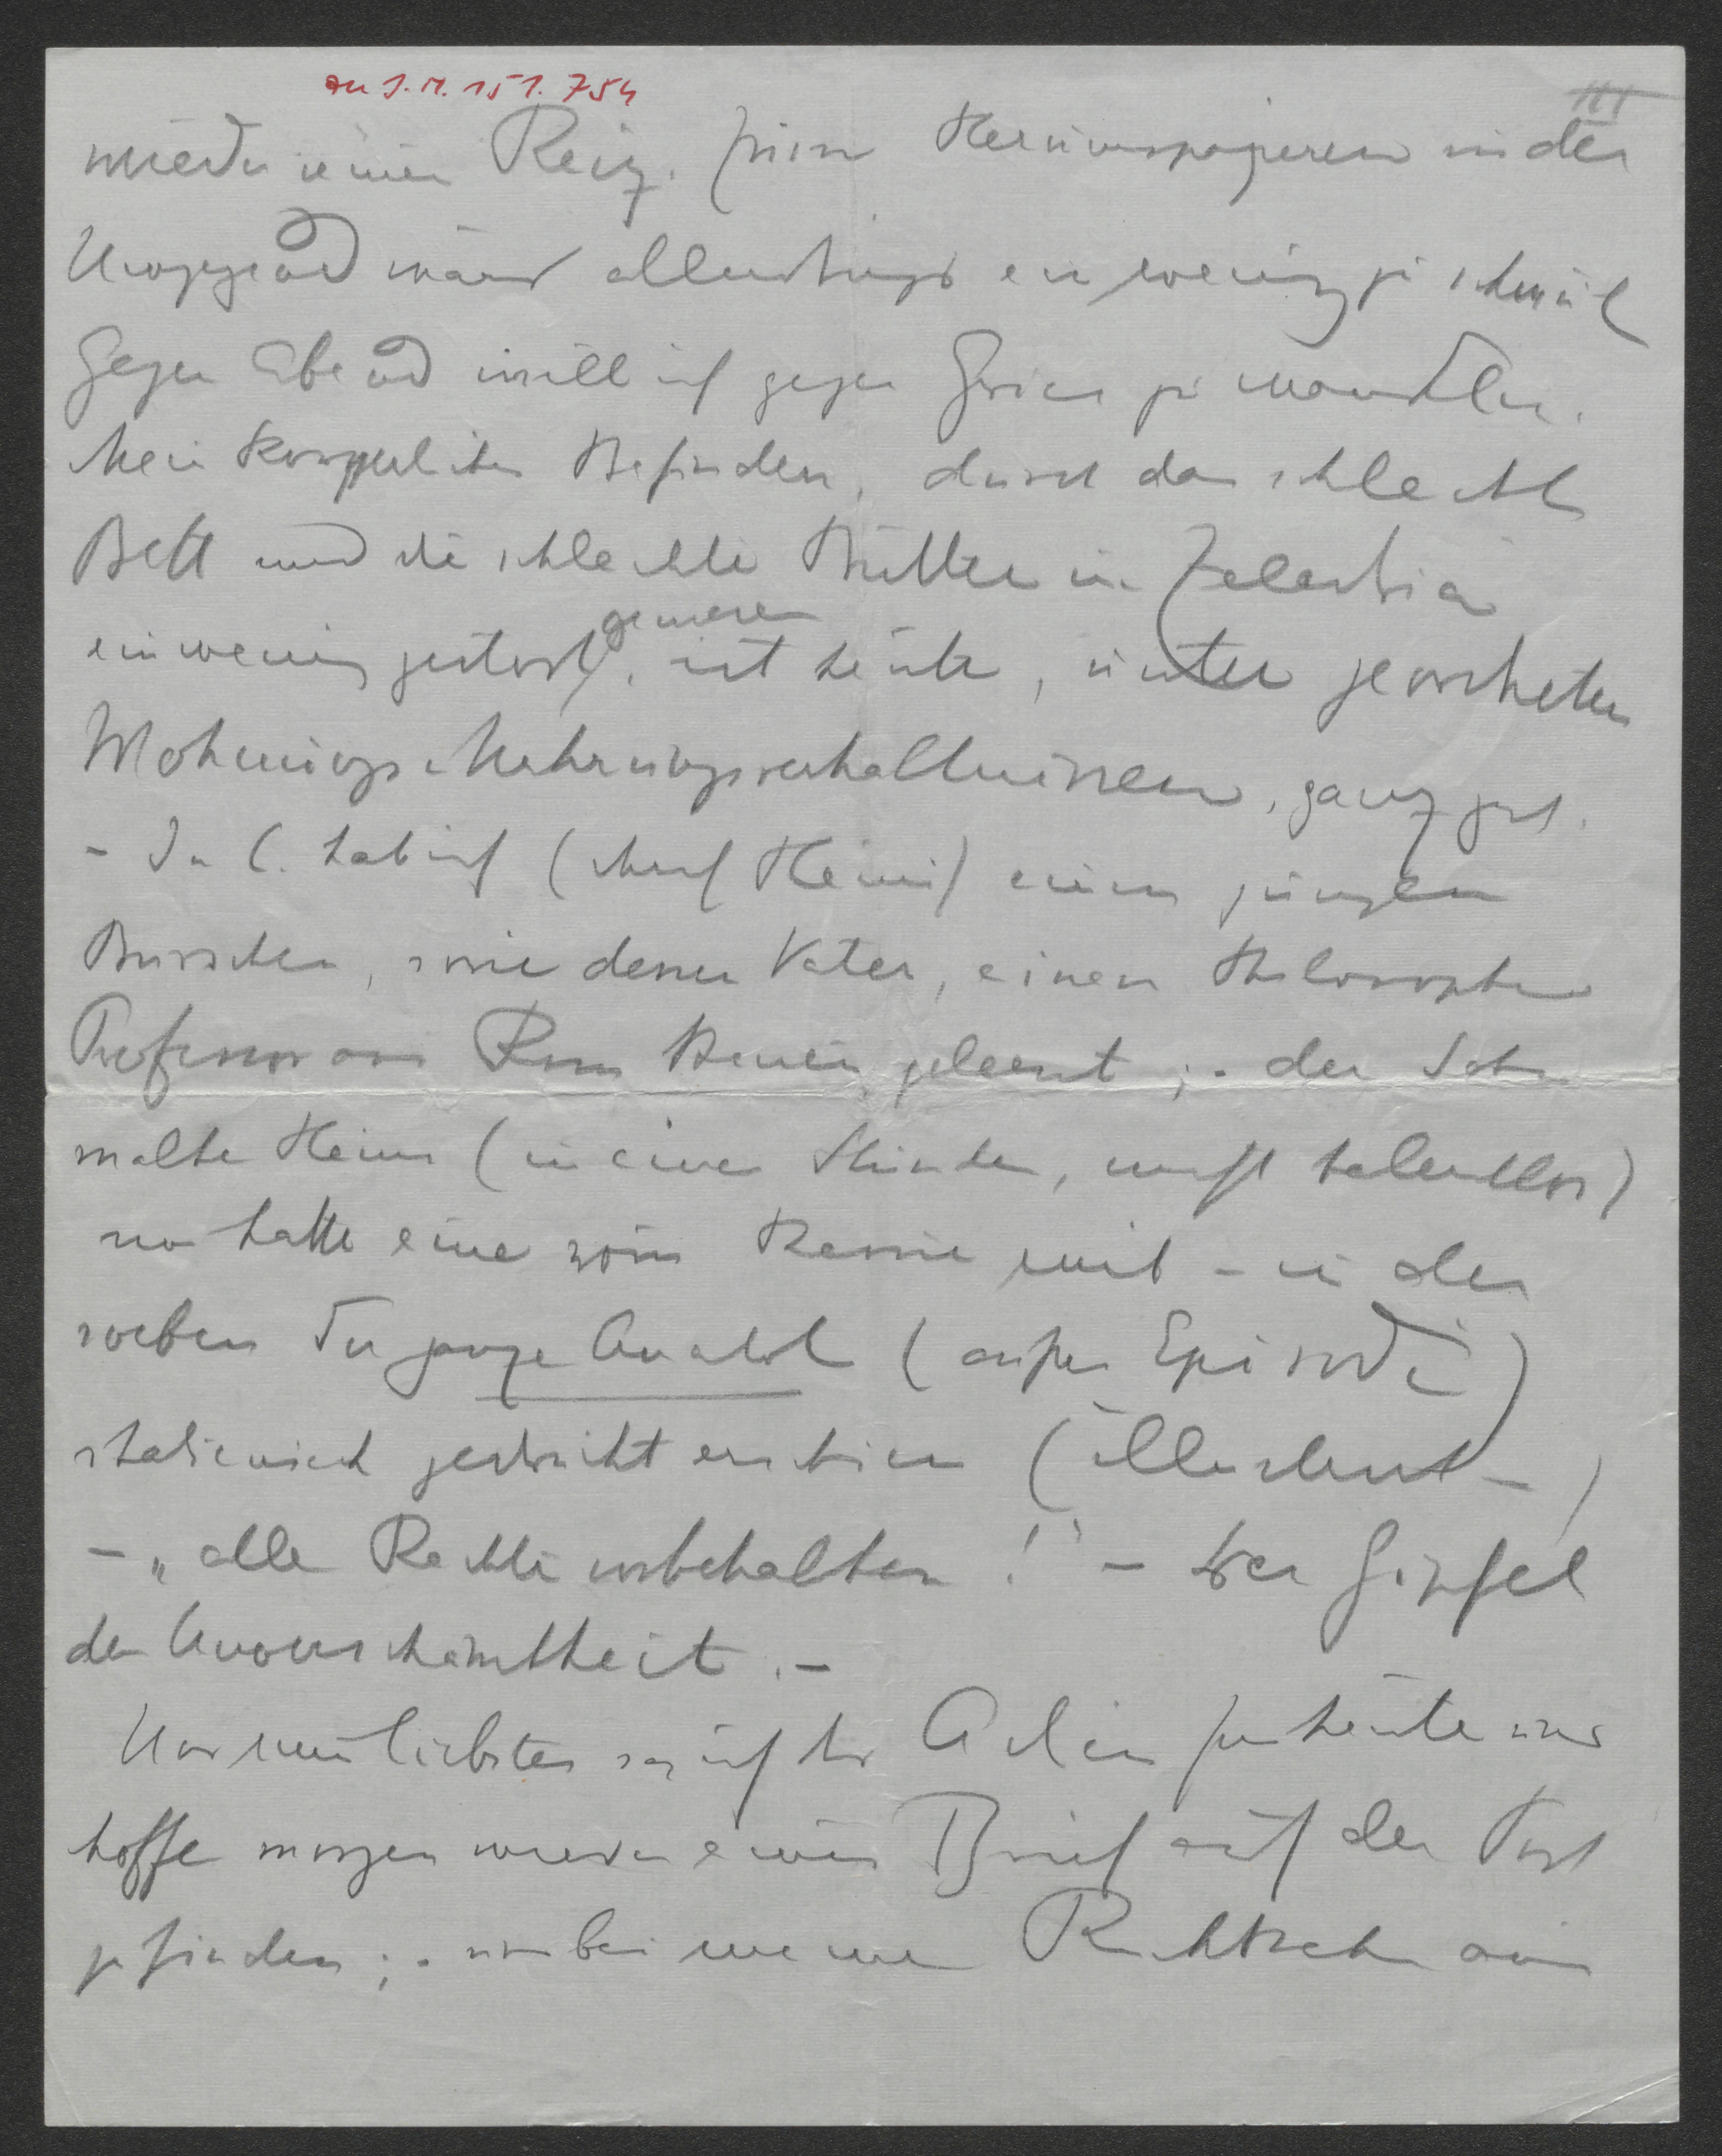 zu I. N. 151. 754
III
wieder seinen Reiz. Zum Herumspazieren in der
Umgegend wärs allerdings ein wenig zu schwül
Gegen Abend will ich gegen Gries zu wandeln.
Mein körperliches Befinden, durch das schlechte
Bett und die schlechte Butter in Celerina
ein wenig gestört gewesen, ist heute, unter geordneten
Wohnungs- Nahrungsverhältnissen, ganz gut.
– In C. hab ich (durch Heini) einen jungen
Burschen, sowie dessen Vater, einen Philosophie
Professor aus Rom kennen gelernt; – der Sohn
malte Heini (in einer Stunde, nicht talentlos)
und hatte eine röm Revue mit – in der
soeben der ganze Anatol (außer Episode)
italienisch gedruckt erschien (illustriert –)
– „alle Rechte vorbehalten!" – der Gipfel
der Unverschämtheit. –
Und nun liebstes sag ich dir Adieu für heute und
hoffe morgen wieder einen Brief auf der Post
zu finden; – und bei meiner Rückkehr ein